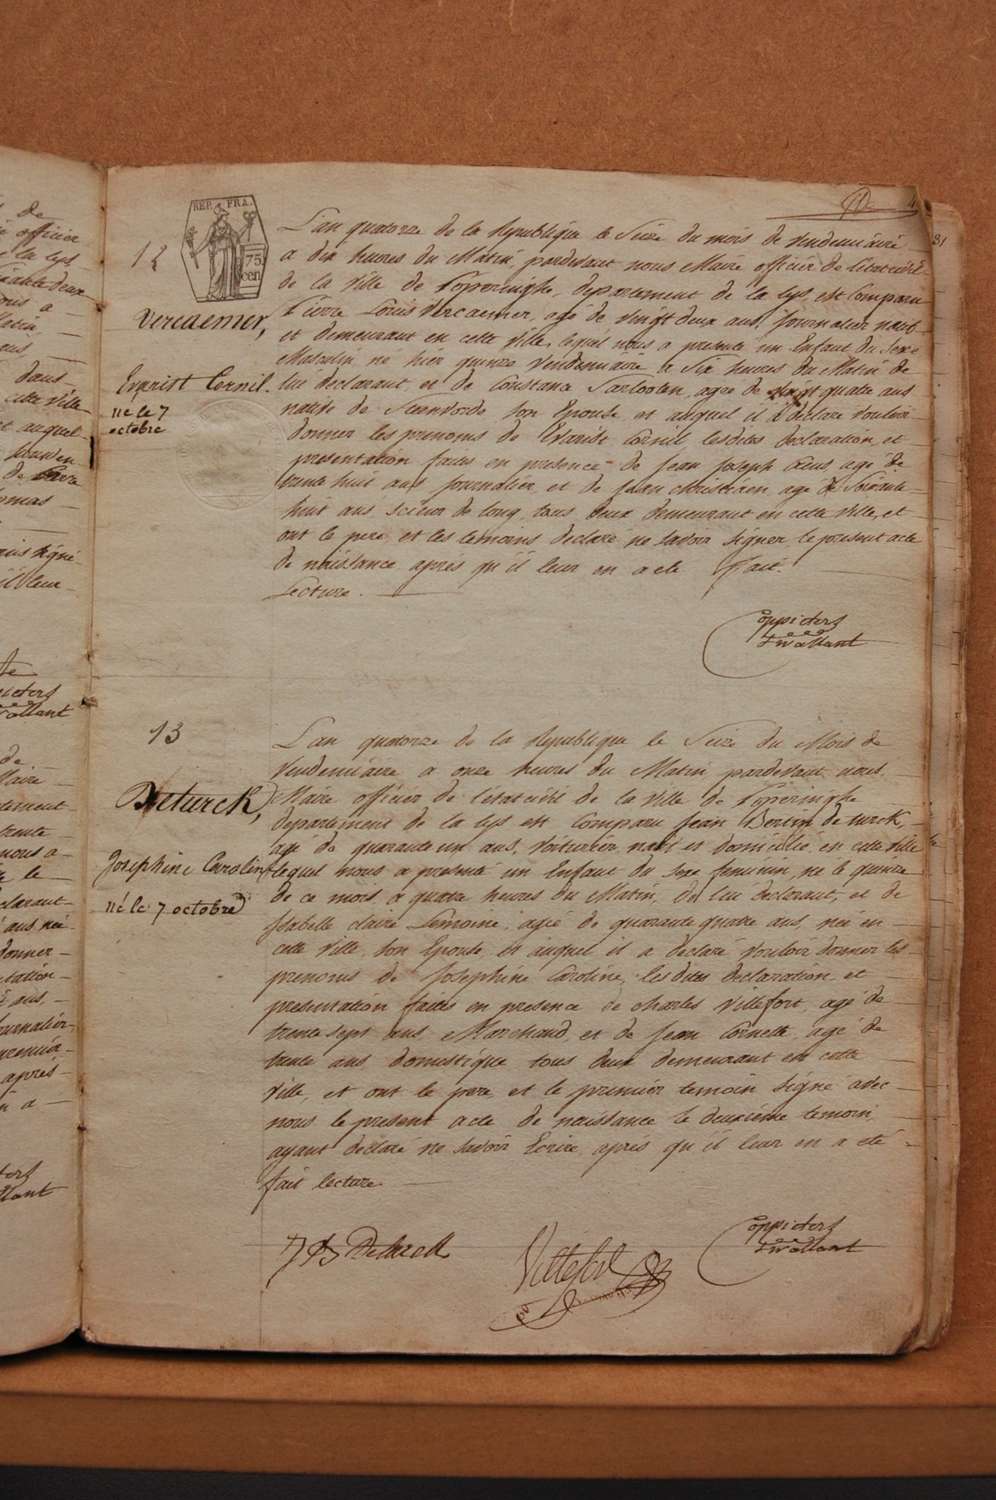 12
REP. FRA.
75
cen
Vercaemer,
Evarist Cornil.
né le 7
octobre
L'an quatorze de la Republique le Seize du mois de Vendemiaire
a dix heures du Matin, pardevant nous Maire officier de l'état civil
de la Ville de Poperinghe, departement de la Lys, est Comparu
Pierre Louis Vercaemer, agé de vingt deux ans, Journalier natif
et demeurant en cette Ville, lequel nous a presenté un Enfant du Sexe
Masculin né hier quinze Vendemiaire a Six heures du Matin de
lui declarant et de Constance agée de vingt quatre ans
native de Steenvorde Son Epouse et auquel il a declaré vouloir
donner les prenoms de Evariste Cornil lesdites declaration et
presentation faites en presence de Jean Joseph agé de
trente huit ans Journalier, et de Jean agé de Soixante
huit ans Scieur de long, tous deux demeurant en cette Ville, et
ont le pere, et les temoins declaré ne Savoir Signer le present acte
de naissance après qu'il leur en a eté fait
Lecture.
Coppieters
tWallant
13
Deturck,
Josephine Carolin
né le 7 octobre
L'an quatorze de la Republique le Seize du Mois de
Vendemiaire a onze heures du Matin pardevant nous
Maire officier de l'état civil de la Ville de Poperinghe
departement de la Lys est Comparu Jean Bertin de turck,
agé de quarante un ans, Voiturier natif et domicilié en cette Ville
lequel nous a presenté un Enfant du Sexe feminin, né le quinze
de ce mois a quatre heures du Matin, de lui declarant, et de
Isabelle Claire Lemoine, agée de quarante quatre ans, née en
cette Ville, Son Epouse, et auquel il a declaré vouloir donner les
prenoms de Josephine Caroline, lesdites declaration et
presentation faites en presence de Charles Villefort, agé de
trente sept ans Marchand, et de Jean Cornette agé de
trente ans domestique tous deux demeurant en cette
Ville, et ont le pere et le premier temoin Signé avec
nous le present acte de naissance le deuxième temoin
ayant declaré ne Savoir Ecrire, après qu'il leur en a eté
fait lecture.
J B Deturck
Villefort
Coppieters
tWallant